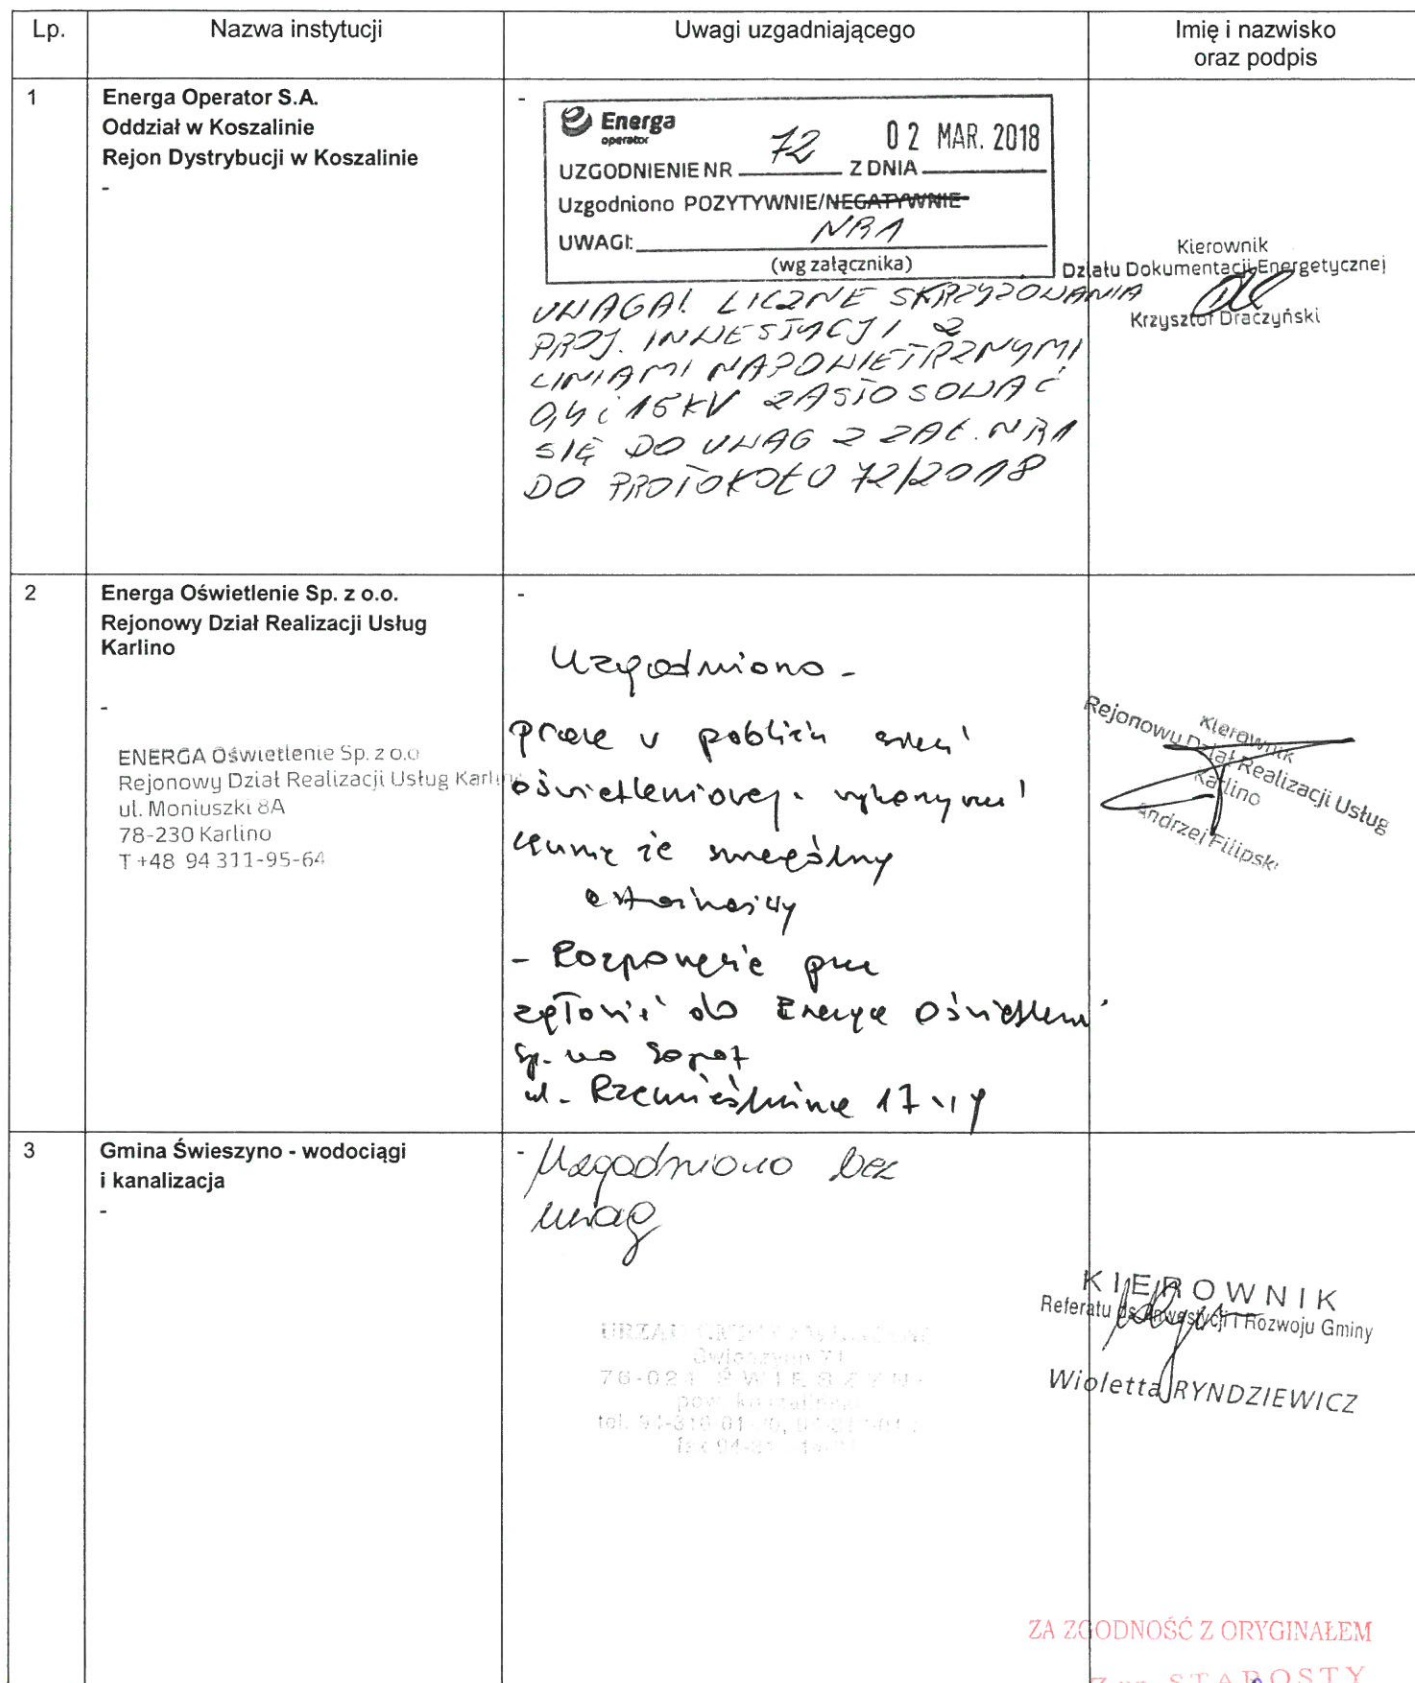 Lp.
Nazwa instytucji
Uwagi uzgadniającego
Imię i nazwisko
oraz podpis
1
Energa Operator S.A.
Oddział w Koszalinie
Rejon Dystrybucji w Koszalinie
-
-
Energa
operator
02 MAR. 2018
UZGODNIENIE NR 72 Z DNIA
Uzgodniono POZYTYWNIE/NEGATYWNIE
UWAGI: NR 1
(wg załącznika)
UWAGA! LICZNE SKRZYŻOWANIA
PROJ. INWESTYCJI Z
LINIAMI NAPOWIETRZNYMI
0,4 i 15 kV ZASTOSOWAĆ
SIĘ DO UWAG Z ZAŁ. NR 1
DO PROTOKOŁU 72/2018
Kierownik
Działu Dokumentacji Energetycznej
Krzysztof Draczyński
2
Energa Oświetlenie Sp. z o.o.
Rejonowy Dział Realizacji Usług
Karlino
-
ENERGA Oświetlenie Sp. z o.o
Rejonowy Dział Realizacji Usług Karlino
ul. Moniuszki 8A
78-230 Karlino
T +48 94 311-95-64
-
Uzgodniono -
prace w pobliżu sieci
oświetleniowej wykonywać
ze szczególną
ostrożnością
- Rozpoczęcie prac
zgłosić do Energa Oświetlenie
Sp. zoo Sopot
ul. Rzemieślnicza 17/19
Kierownik
Rejonowy Dział Realizacji Usług
Karlino
Andrzej Filipski
3
Gmina Świeszyno - wodociągi
i kanalizacja
-
- Uzgodniono bez
uwag
URZĄD GMINY
Świeszyno 71
76-024 ŚWIESZYNO
KIEROWNIK
Referatu ds. Inwestycji i Rozwoju Gminy
Wioletta RYNDZIEWICZ
ZA ZGODNOŚĆ Z ORYGINAŁEM
Z up. STAROSTY